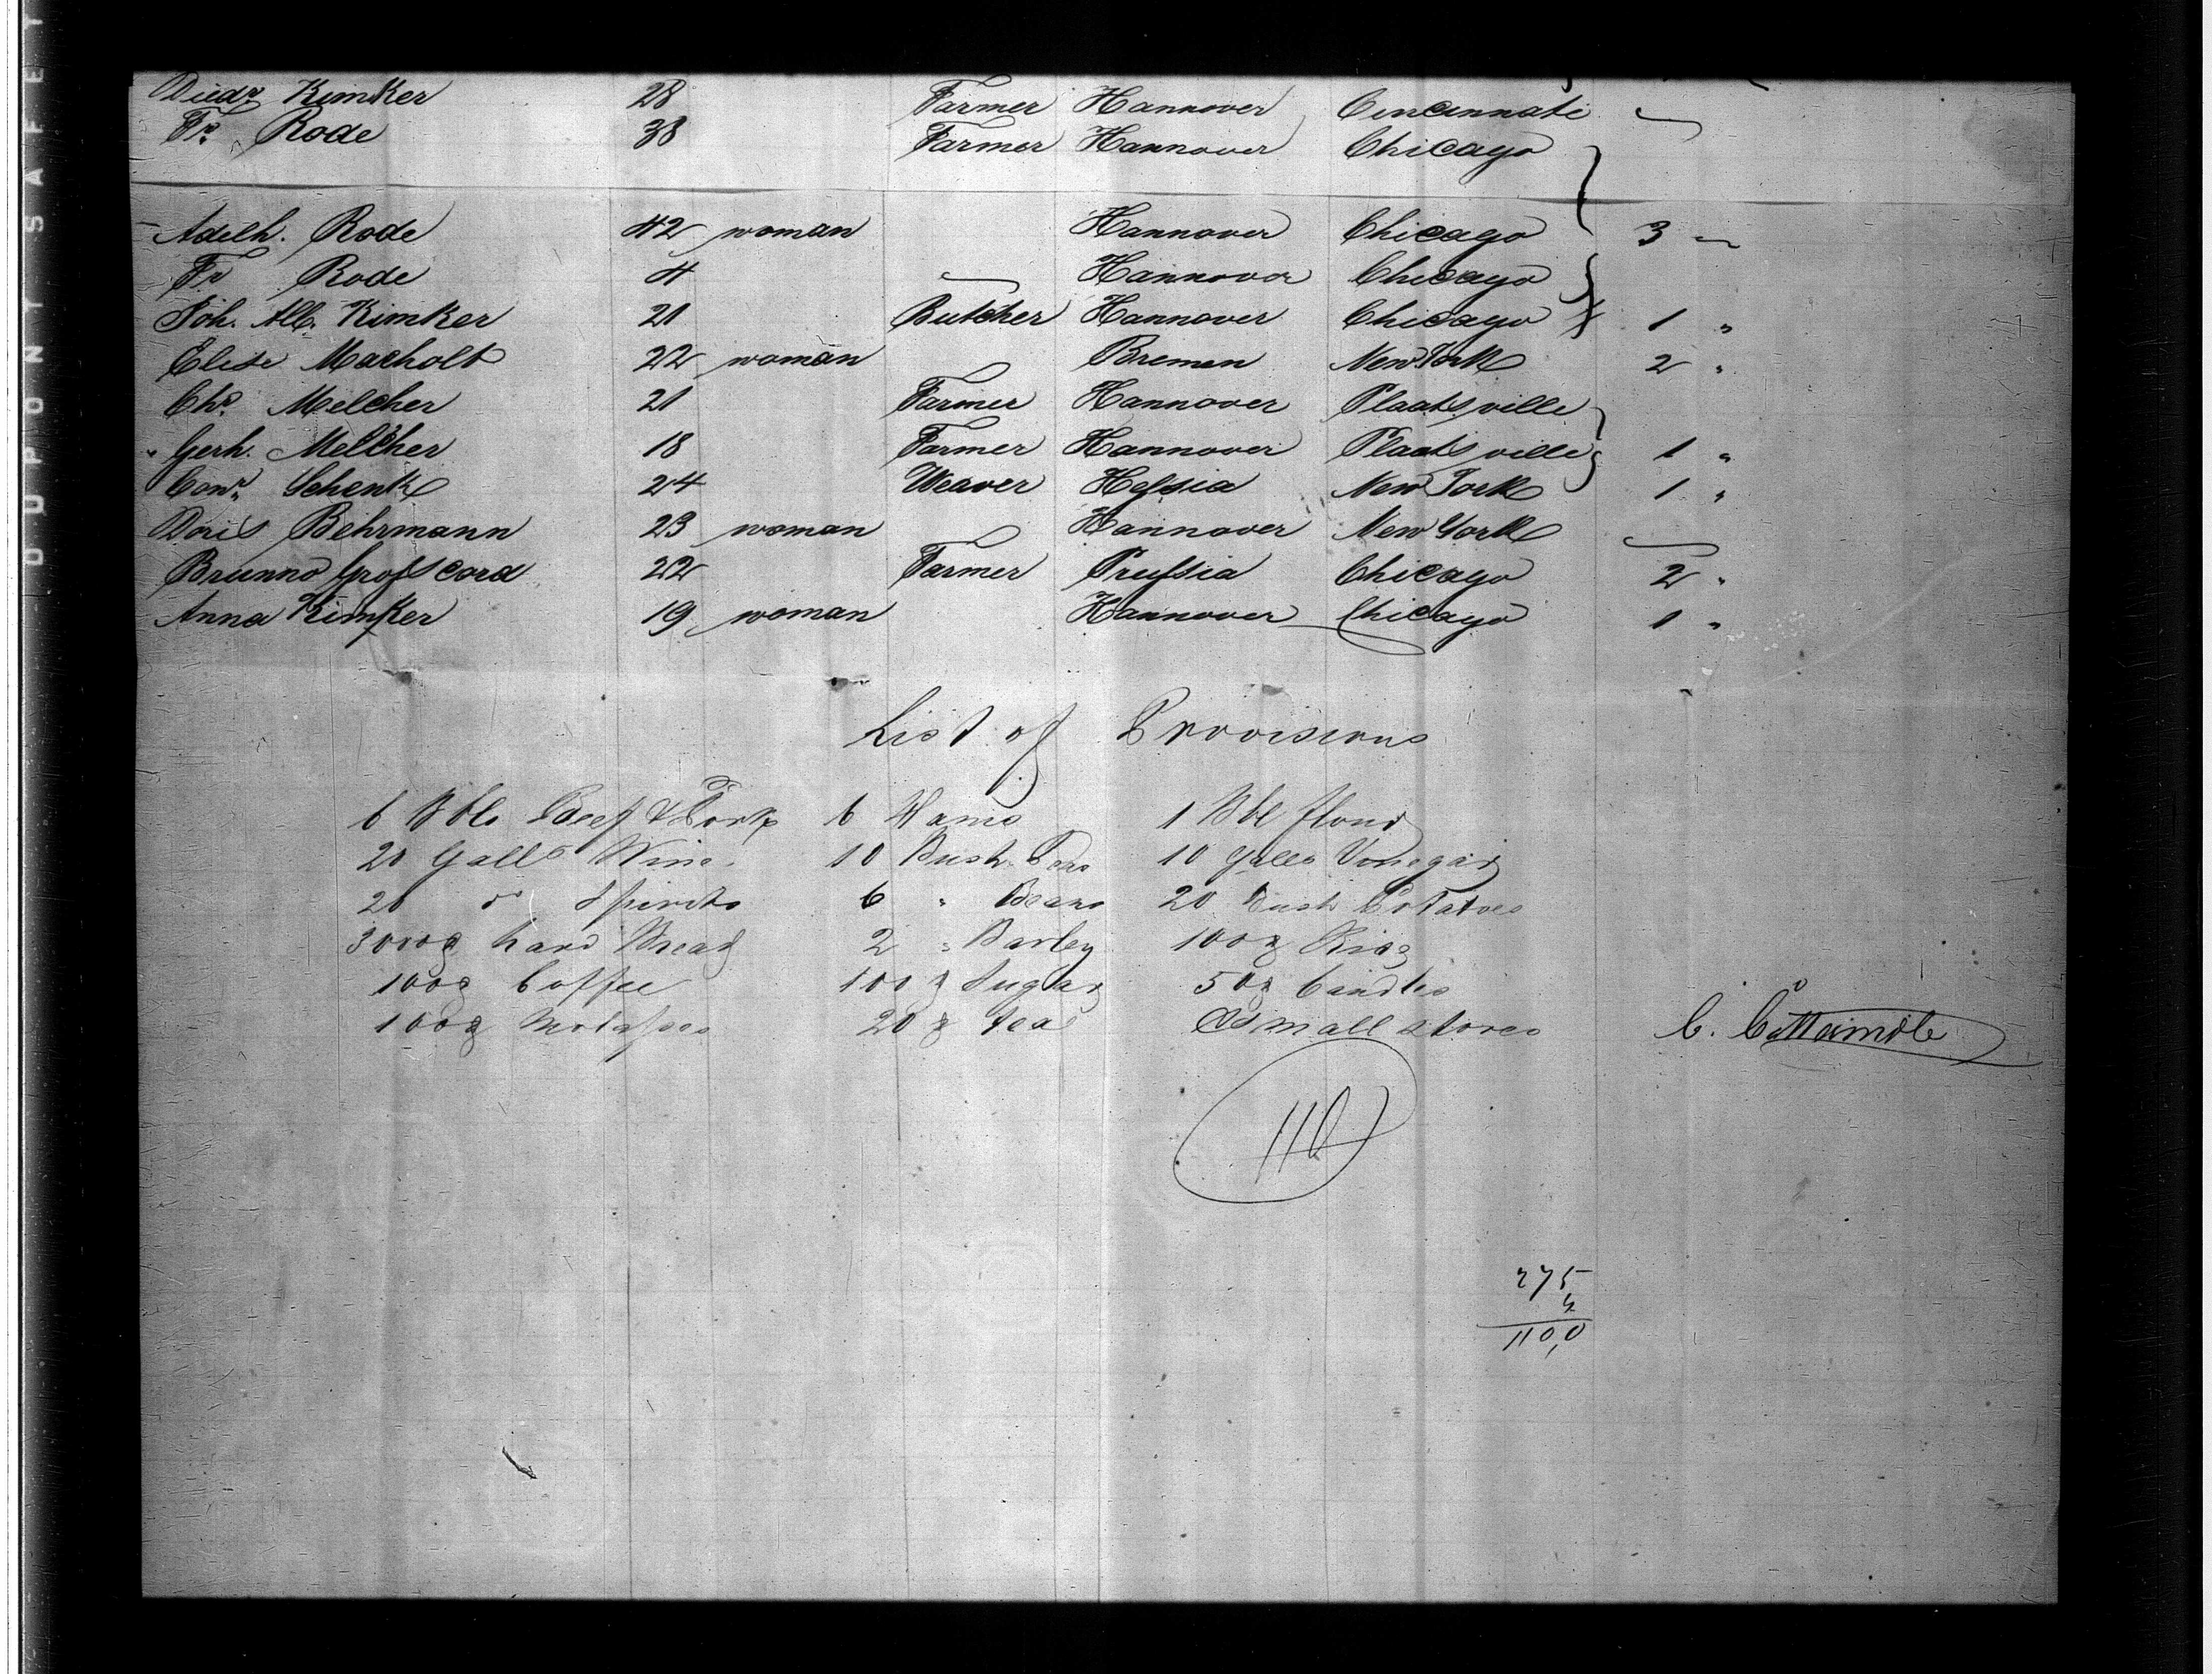 Diedr. Kimker 28 Farmer Hannover Cincinnati
Fr. Rode 38 Farmer Hannover Chicago
Adelh. Rode 42 woman Hannover Chicago 3 "
Fr. Rode 4 Hannover Chicago
Joh. Alb. Kimker 21 Butcher Hannover Chicago 1 "
Elise Macholt 22 woman Bremen New York 2 "
Chr. Melcher 21 Farmer Hannover Plaatsville
Gerh. Melcher 18 Farmer Hannover Plaatsville 1 "
Conr. Schenk 24 Weaver Hessia New York 1 "
Doris Behrmann 23 woman Hannover New York
Brunno Grosscord 22 Farmer Prussia Chicago 2 "
Anna Kimker 19 woman Hannover Chicago 1 "
List of Provisions
6 Bbls Beef & Pork 6 Hams 1 Bbl flour
20 Galls Wine 10 Bush Peas 10 Galls Vinegar
20 do Spirits 6 " Beans 20 Bush Potatoes
3000 hard Bread 2 " Barley 100 Rice
100 Coffee 100 Sugar 50 Candles
100 Molasses 20 tea Small stores
C.
110
275
4
110,0
DUPONT SAFETY